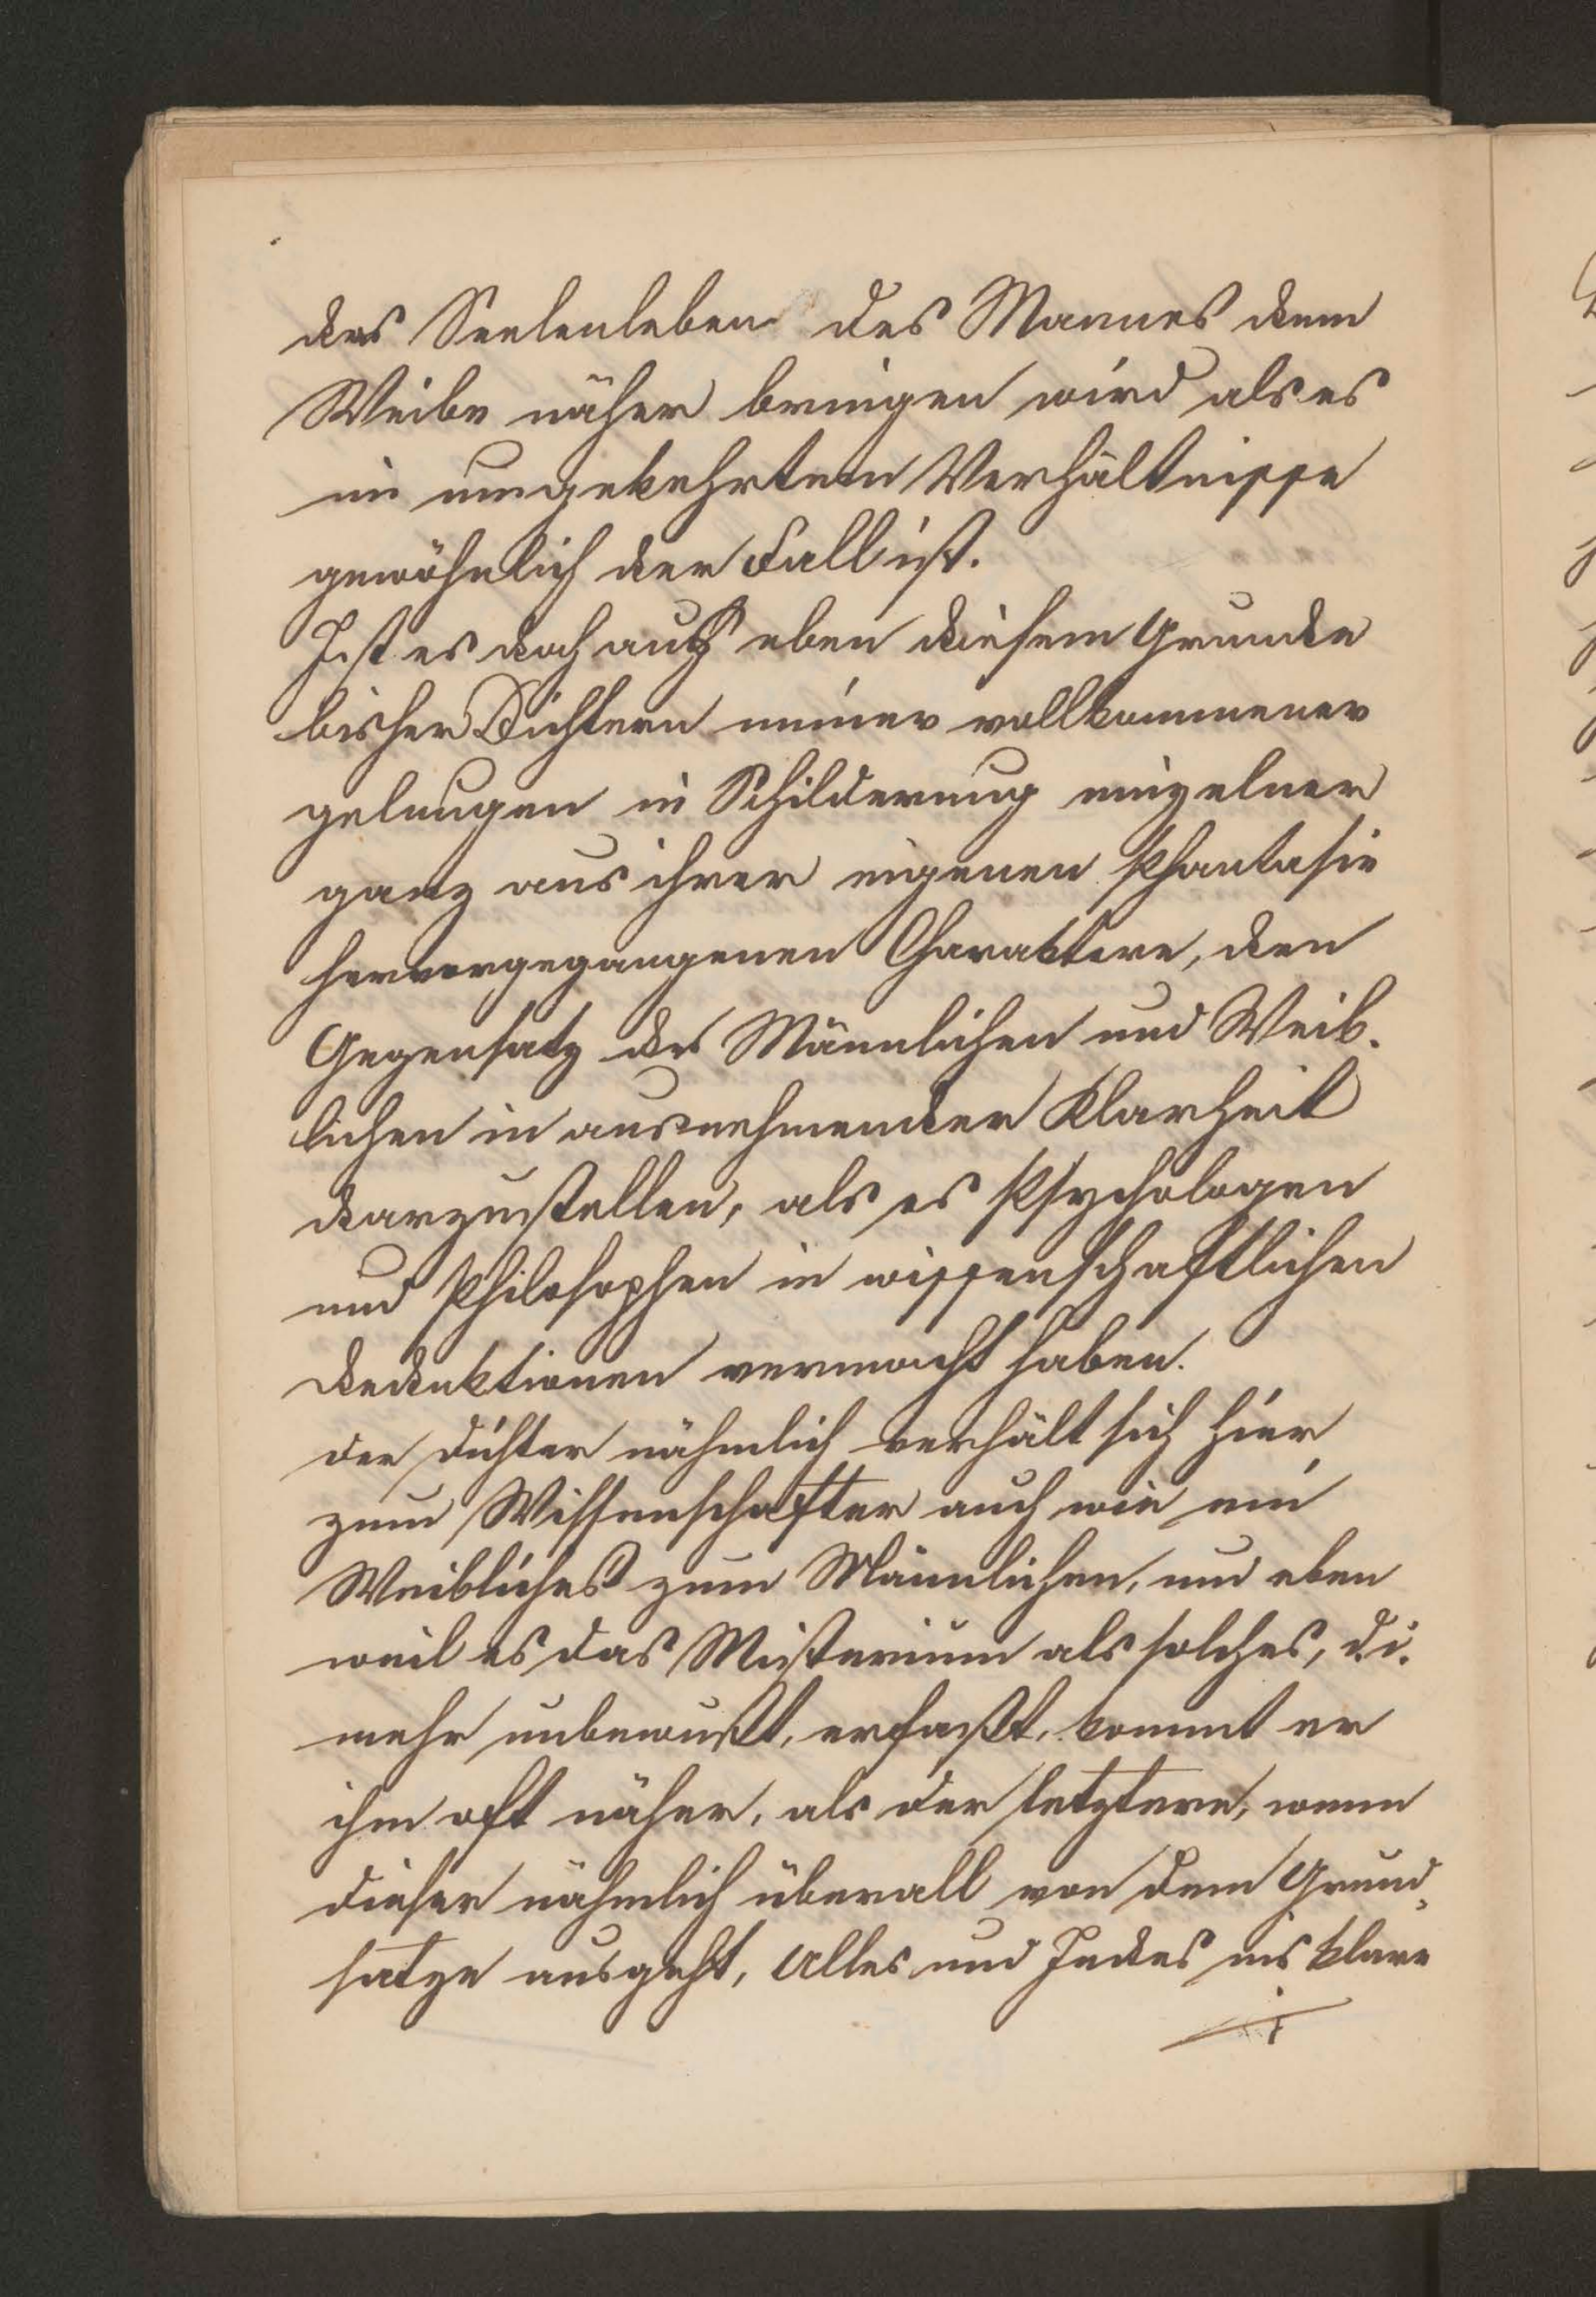 das Seelenleben des Mannes dem
Weibe näher bringen wird als es
im umgekehrten Verhältnisse
gewöhnlich der Fall ist.
Ist es doch aus eben diesem Grunde
bisher Dichtern immer vollkommener
gelungen in Schilderung einzelner
ganz aus ihrer eigenen Phantasie
hervorgegangenen Charaktere, den
Gegensatz des Männlichen und Weib-
lichen in ausnehmender Klarheit
darzustellen, als es Psychologen
und Philosophen in wissenschaftlichen
Deduktionen vermocht haben.
der Dichter nähmlich verhält sich hier
zum Wissenschafter auch wie ein
Weibliches zum Männlichen, und eben
weil es das Misterium als solches, d.i.
mehr unbewußt, erfaßt, kommt er
ihm oft näher, als der letztere, wenn
dieser nähmlich überall von dem Grund-
satze ausgeht, Alles und Jedes ins klare